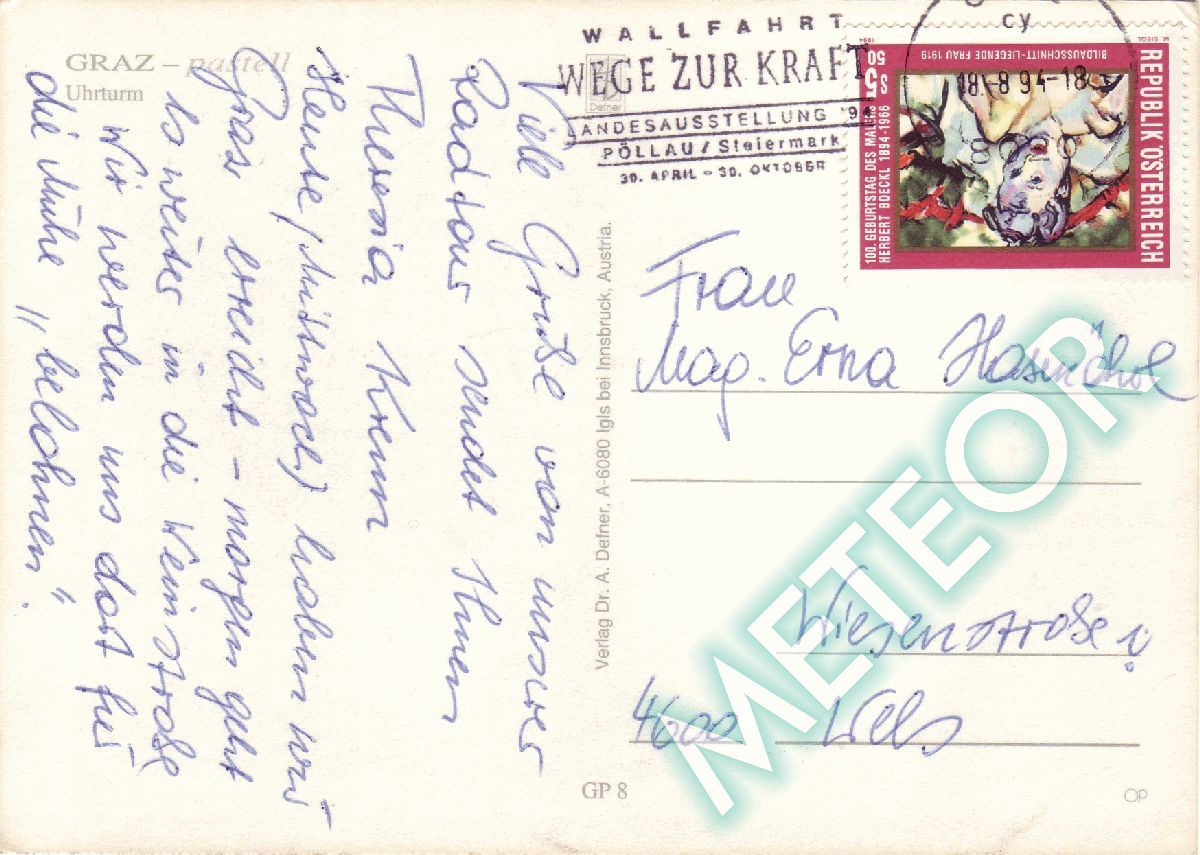 GRAZ – pastell
Uhrturm
Viele Grüße von unserer
Radtour sendet Ihnen
Theresia Krenn
Heute (Mittwoch) haben wir
Graz erreicht – morgen geht
es weiter in die Weinstraße
Wir werden uns dort für
die Mühe "belohnen".
Defner
Verlag Dr. A. Defner, A-6080 Igls bei Innsbruck, Austria.
GP 8
WALLFAHRT
WEGE ZUR KRAFT
LANDESAUSSTELLUNG '94
PÖLLAU / Steiermark
30. APRIL – 30. OKTOBER
cy
18.-8.94-18
REPUBLIK ÖSTERREICH
BILDAUSSCHNITT-LIEGENDE FRAU 1919
100. GEBURTSTAG DES MALERS
HERBERT BOECKL 1894-1966
S 5 50
1994
M. SIEGL
Frau
Mag. Erna
Wiesenstraße
4600 Wels
METEOR
OP